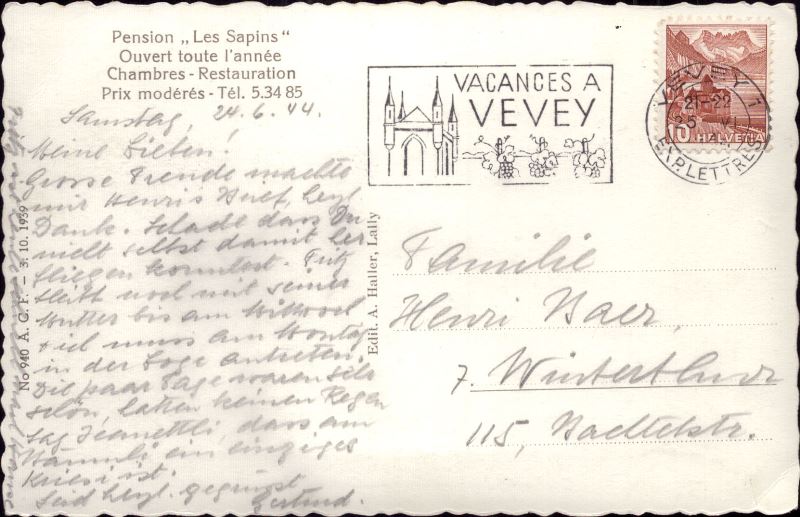 Pension „Les Sapins"
Ouvert toute l'année
Chambres - Restauration
Prix modérés - Tél. 5.34 85
Samstag, 24.6.44.
Meine Lieben!
Grosse Freude machte
mir Henris Brief, herzl.
Dank. Schade dass Du
nicht selbst damit her
fliegen konntest. Fritz
bleibt noch mit seiner
Mutter bis am Mittwoch
ich muss am Montag
in der Loge antreten.
Die paar Tage waren sehr
schön, hatten keinen Regen
Sag Jeanettli, dass am
Bäumli ein einziges
Kriesi ist.
Seid herzl. gegrüsst
Gertrud.
No 940 A. C. F. — 3. 10. 1939
Edit. A. Haller, Lally
VACANCES A
VEVEY
VEVEY 1
21-22
25. VI.
EXP. LETTRES
10 HELVETIA
Familie
Henri Baer,
7. Winterthur
115, Bachtelstr.